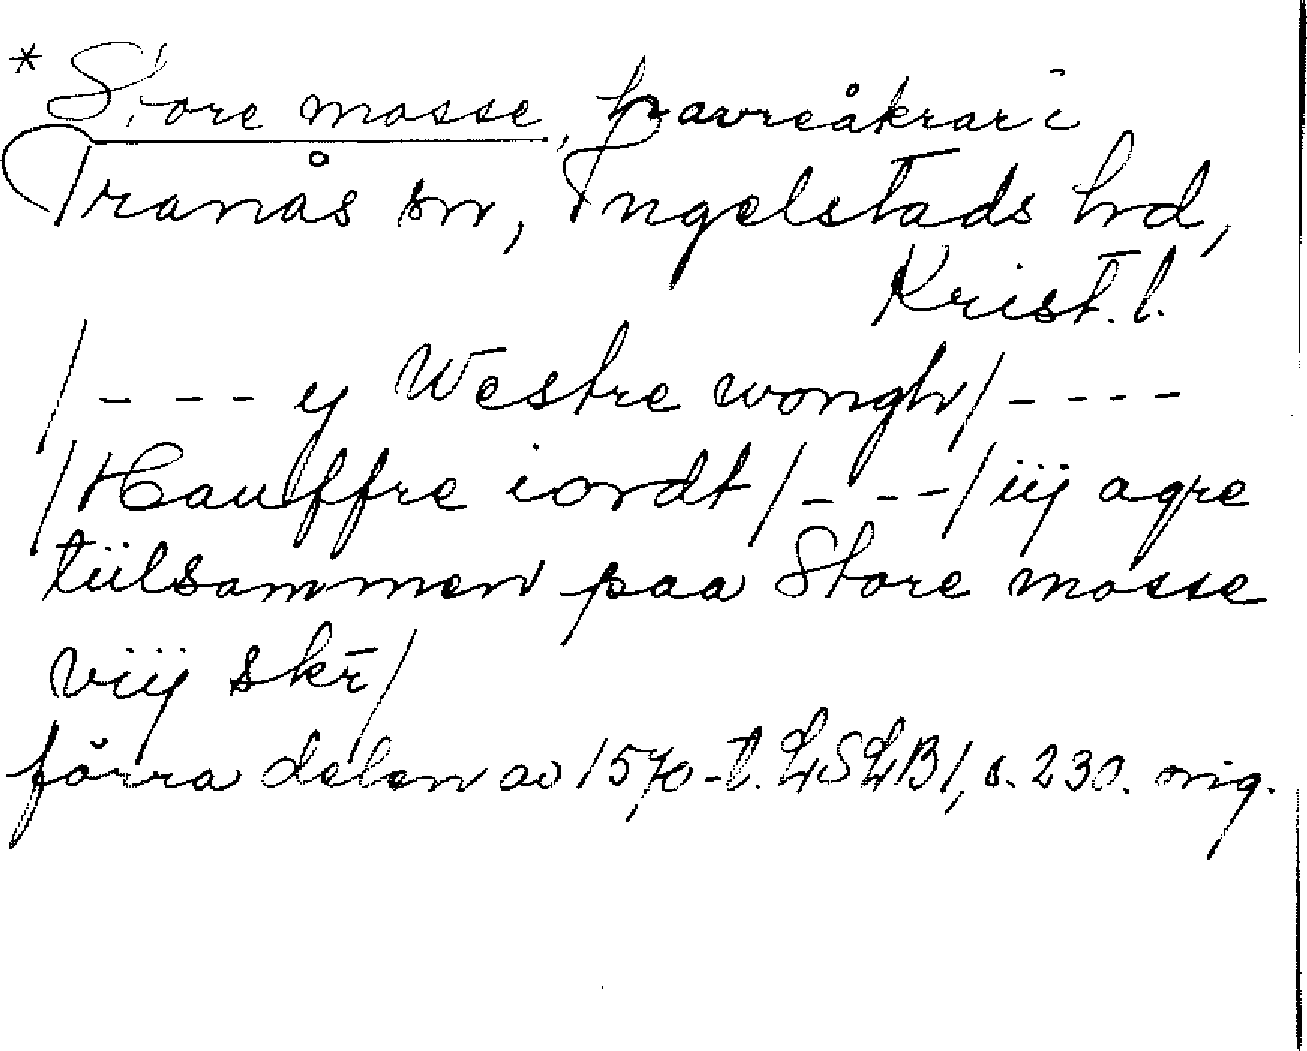 * Store mosse, havreåkrar i
Tranås sn, Ingelstads hrd,
Krist. l.
/ - - - y Westre wongh / - - - -
/ Hauffre iordt / - - - / iij agre
tiilsammen paa Store mosse
viij skr̄ /
förra delen av 1570-t. LSLB 1, s. 230. orig.